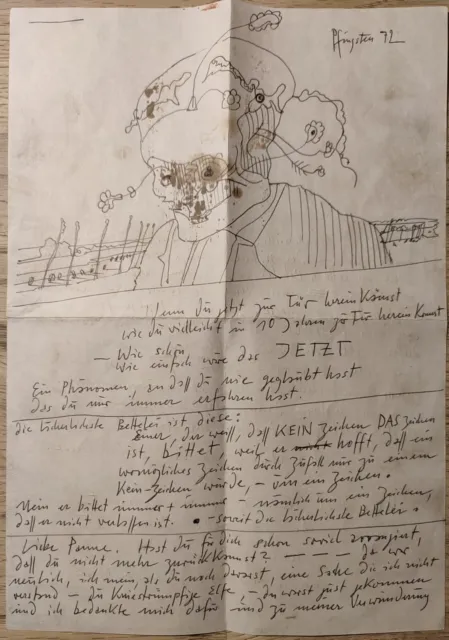 Pfingsten 72
Wenn du jetzt zur Tür hereinkämst
wie du vielleicht in 10 Jahren zur Tür hereinkommst
— Wie schön,
Wie einfach wäre das JETZT
Ein Phänomen, an daß du nie geglaubt hast
das du nur immer erfahren hast.
die lächerlichste Bettelei ist diese:
einer, der weiß, daß KEIN Zeichen DAS Zeichen
ist, bittet, weil er hofft, daß ein
womögliches Zeichen durch Zufall nur zu einem
Kein-Zeichen würde, – um ein Zeichen.
Nein er bittet immer + immer – nämlich um ein Zeichen,
daß er nicht verlassen ist. – soweit die lächerlichste Bettelei.
Liebe Hast du für dich schon soviel
daß du nicht mehr zurückkannst? — da war
neulich, ich mein, als du noch warst, eine Sache die ich nicht
verstand – du Elfe, – du warst just gekommen
und ich bedankte mich dafür und zu meiner Verwunderung